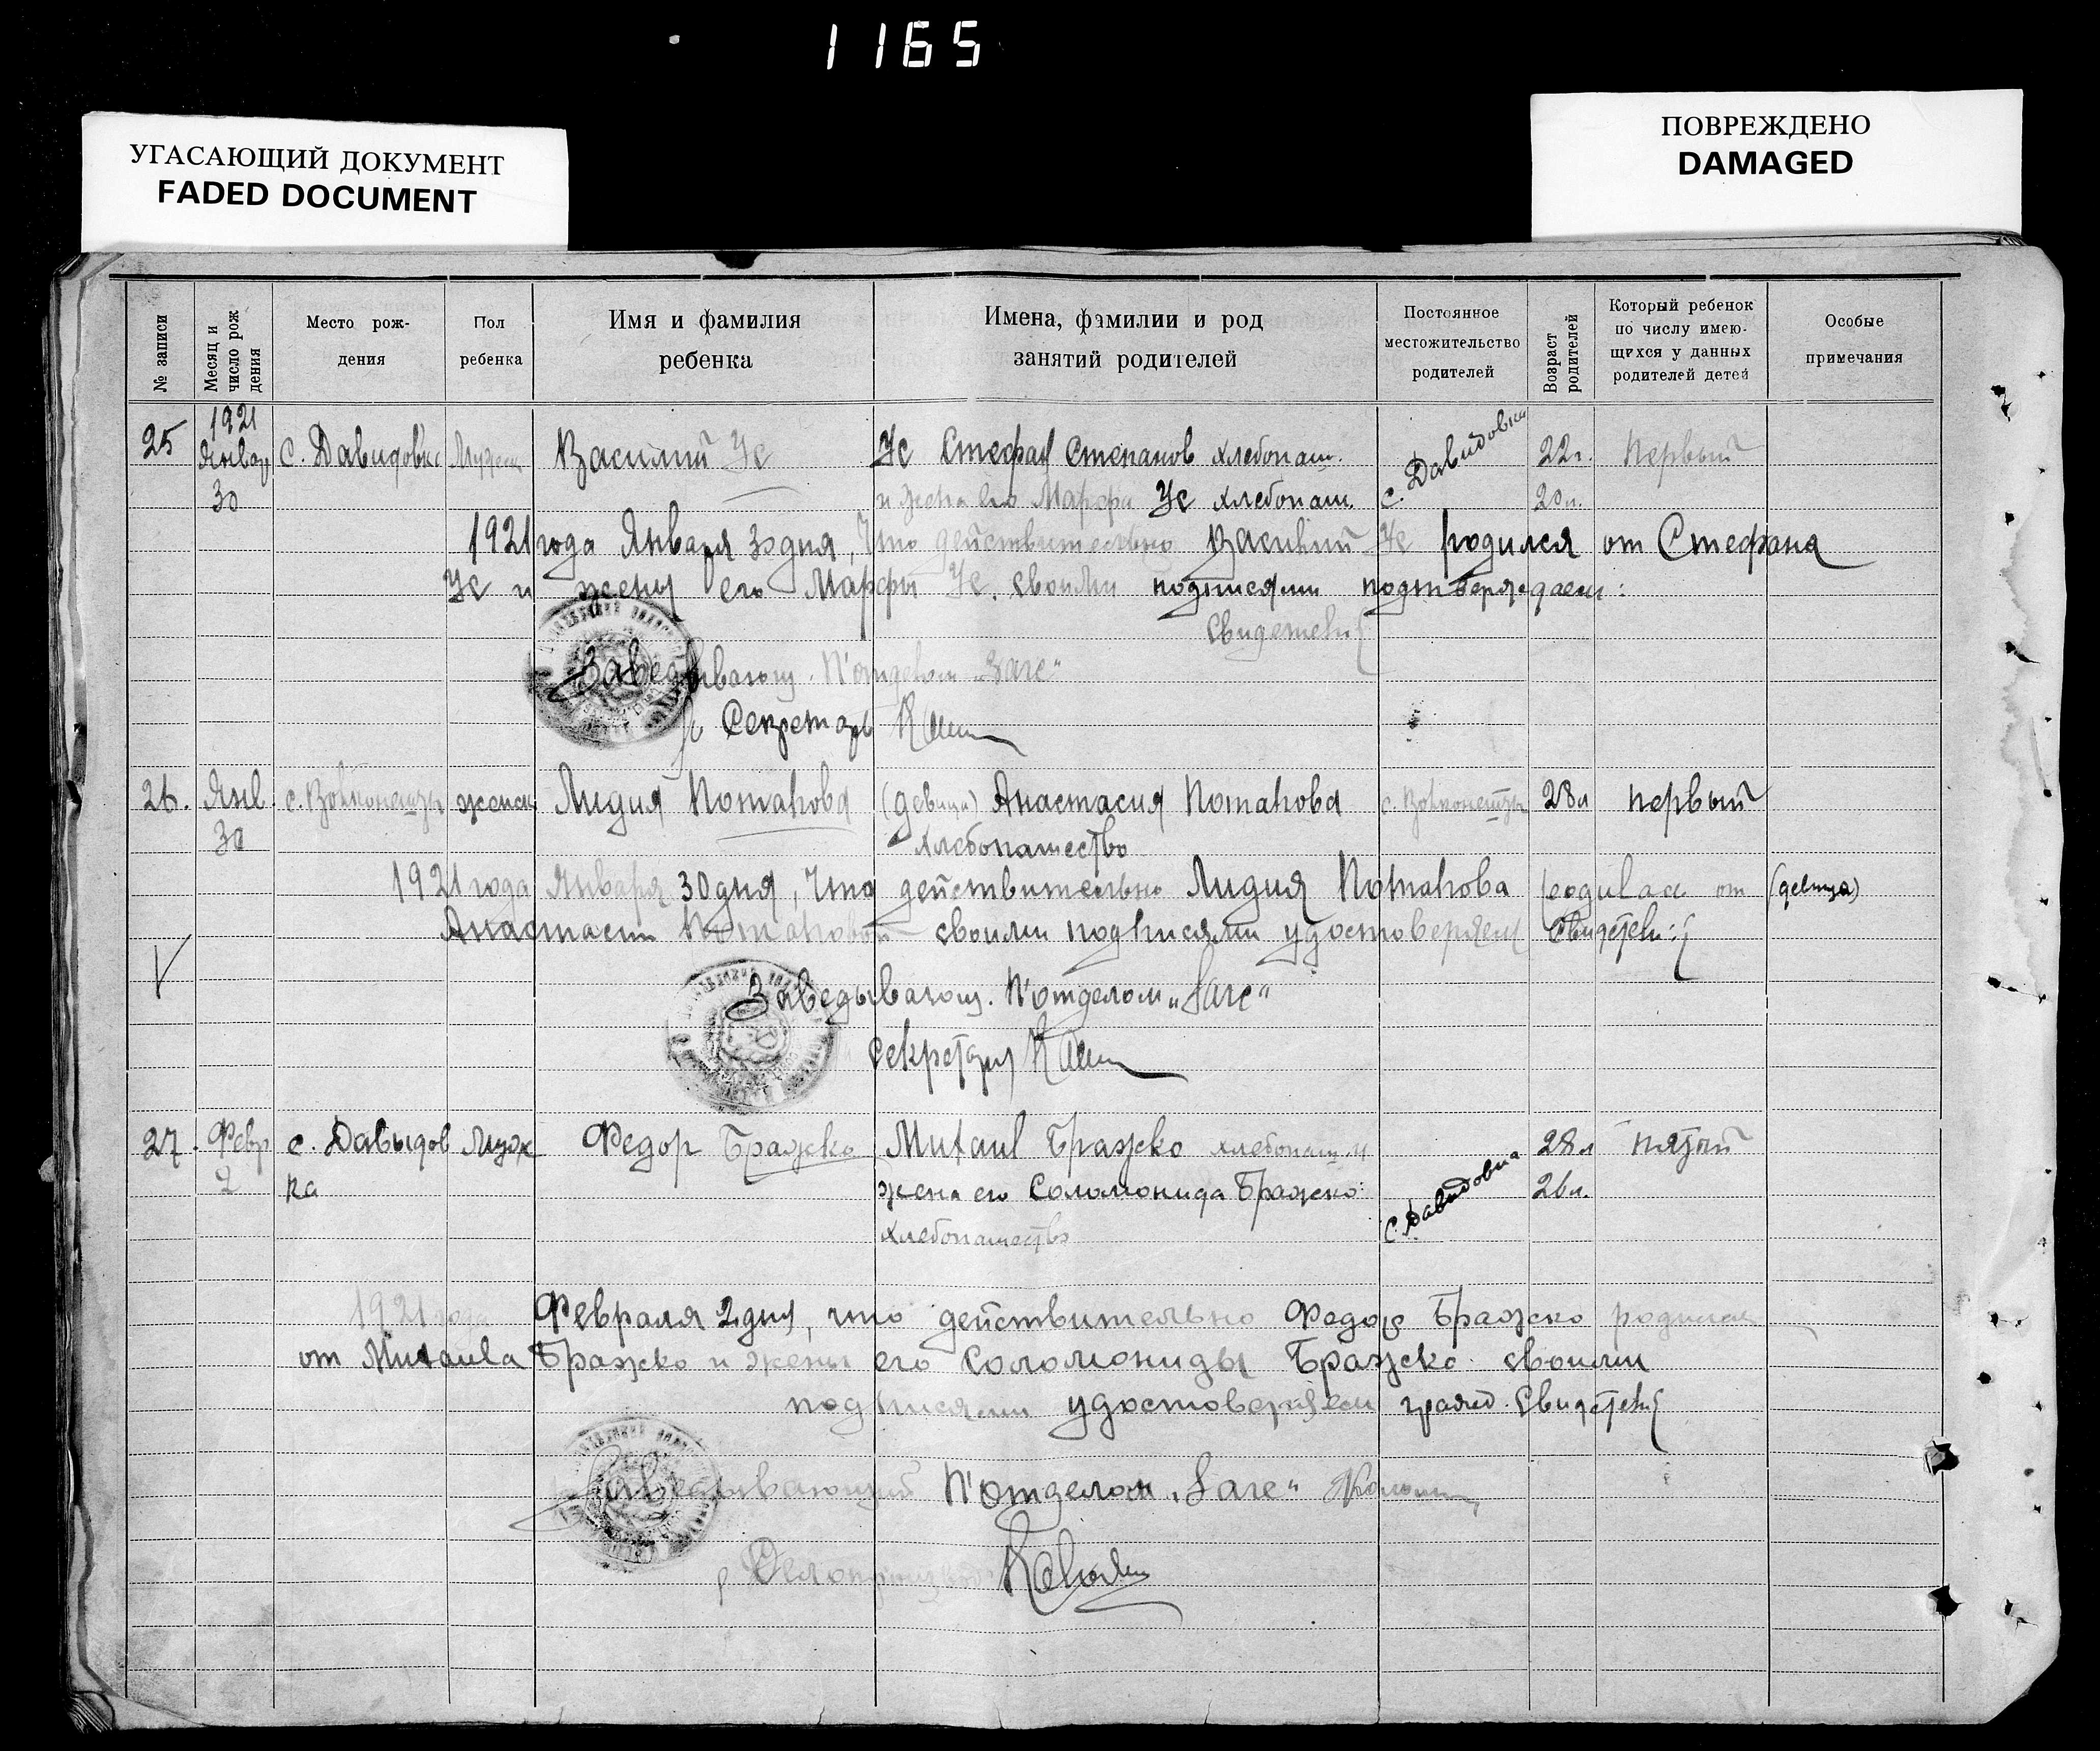 1165
УГАСАЮЩИЙ ДОКУМЕНТ
FADED DOCUMENT
ПОВРЕЖДЕНО
DAMAGED
№ записи
Месяц и число рождения
Место рож-
дения
Пол
ребенка
Имя и фамилия
ребенка
Имена, фамилии и род
занятий родителей
Постоянное
местожительство
родителей
Возраст родителей
Который ребенок
по числу имею-
щихся у данных
родителей детей
Особые
примечания
1921
25 Январ с. Давидовка Мужск Василий Ус Ус Стефан Степанов хлебопаш. с. Давидовка 22л. Первый
30 и жена его Марфа Ус хлебопаш. 20л.
1921 года Января 30 дня, Что действительно Василий Ус родился от Стефана
Ус и жены его Марфы Ус. своими подписями подтверждаем:
Свидетели
Заведывающ. П'отделом „Загс"
Секретарь
26. Янв с. женск Лидия Потапова (девица) Анастасия Потапова с. 28л первый
30 хлебопашество
1921 года Января 30 дня, Что действительно Лидия Потапова родилась от (девица)
Анастасии Потаповой своими подписями удостоверяем Свидетели:
Заведывающ. П'отделом „Загс"
Секретарь
27. Февр с. Давыдов Мужск Федор Бражко Михаил Бражко хлебопаш. и 28л пятый
2 ка жена его Соломонида Бражко: с. Давидовка 26л.
хлебопашество
1921 года Февраля 2 дня, что действительно Федор Бражко родился
от Михаила Бражко и жены его Соломониды Бражко своими
подписями удостоверяем гражд. Свидетели
Заведывающий П'отделом „Загс"
Делопроизвод